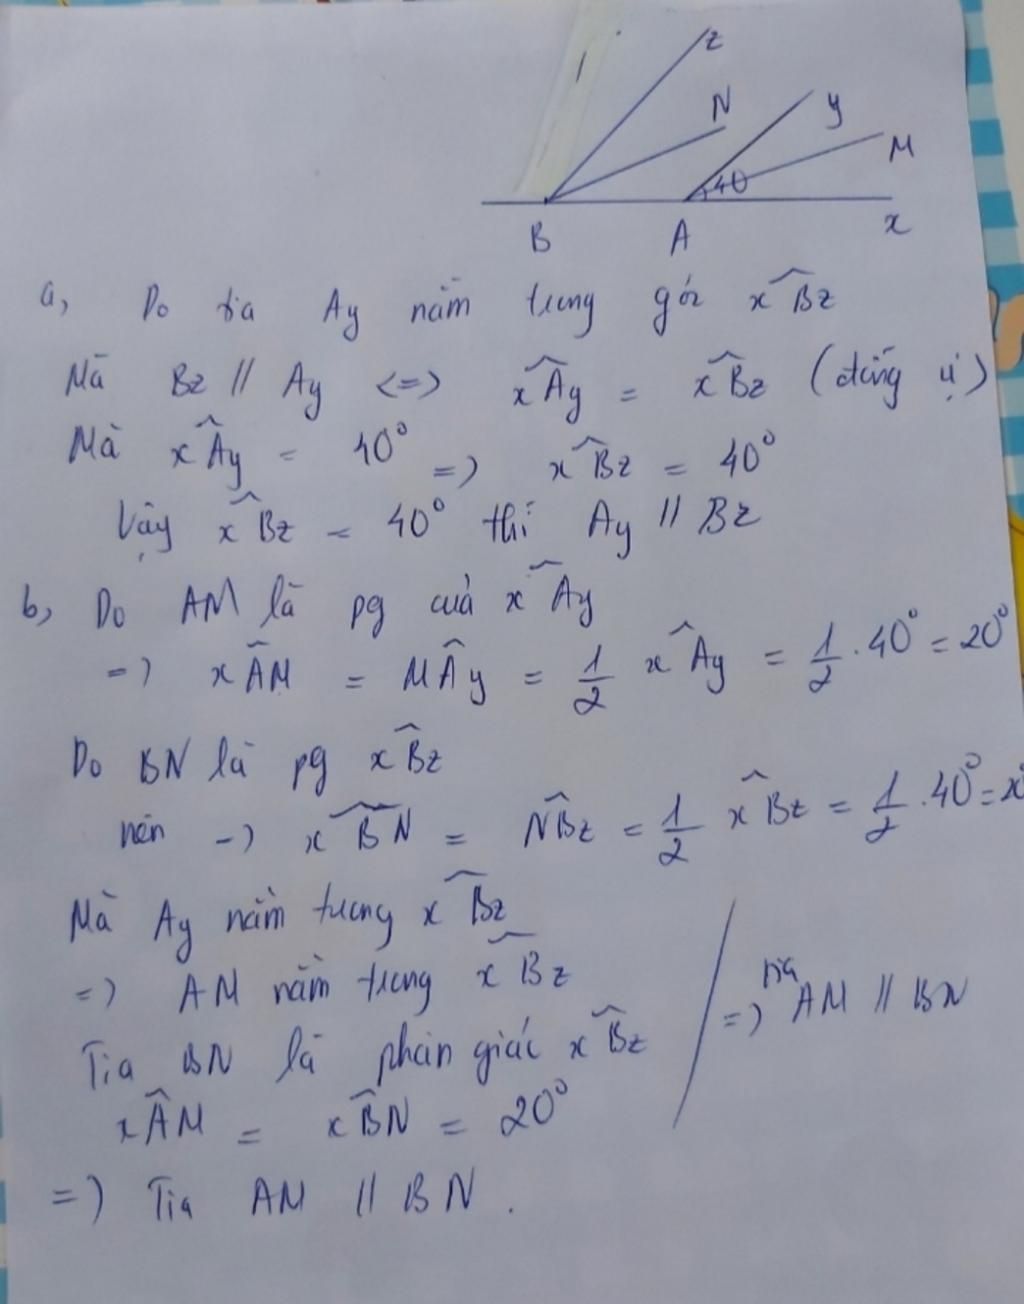 z
N
y
M
40
B
A
x
a, Do tia Ay nằm trong góc xBz
Mà Bz // Ay <=> xAy = xBz (đồng vị)
Mà xAy = 40° => xBz = 40°
Vậy xBz = 40° thì Ay // Bz
b, Do AM là pg của xAy
=> xAM = MAy = 1/2 xAy = 1/2 . 40° = 20°
Do BN là pg xBz
nên => xBN = NBz = 1/2 xBz = 1/2 . 40° = 20
Mà Ay nằm trong xBz
=> AM nằm trong xBz
Tia BN là phân giác xBz
xAM = xBN = 20°
=> Tia AM // BN .
=> tia AM // BN